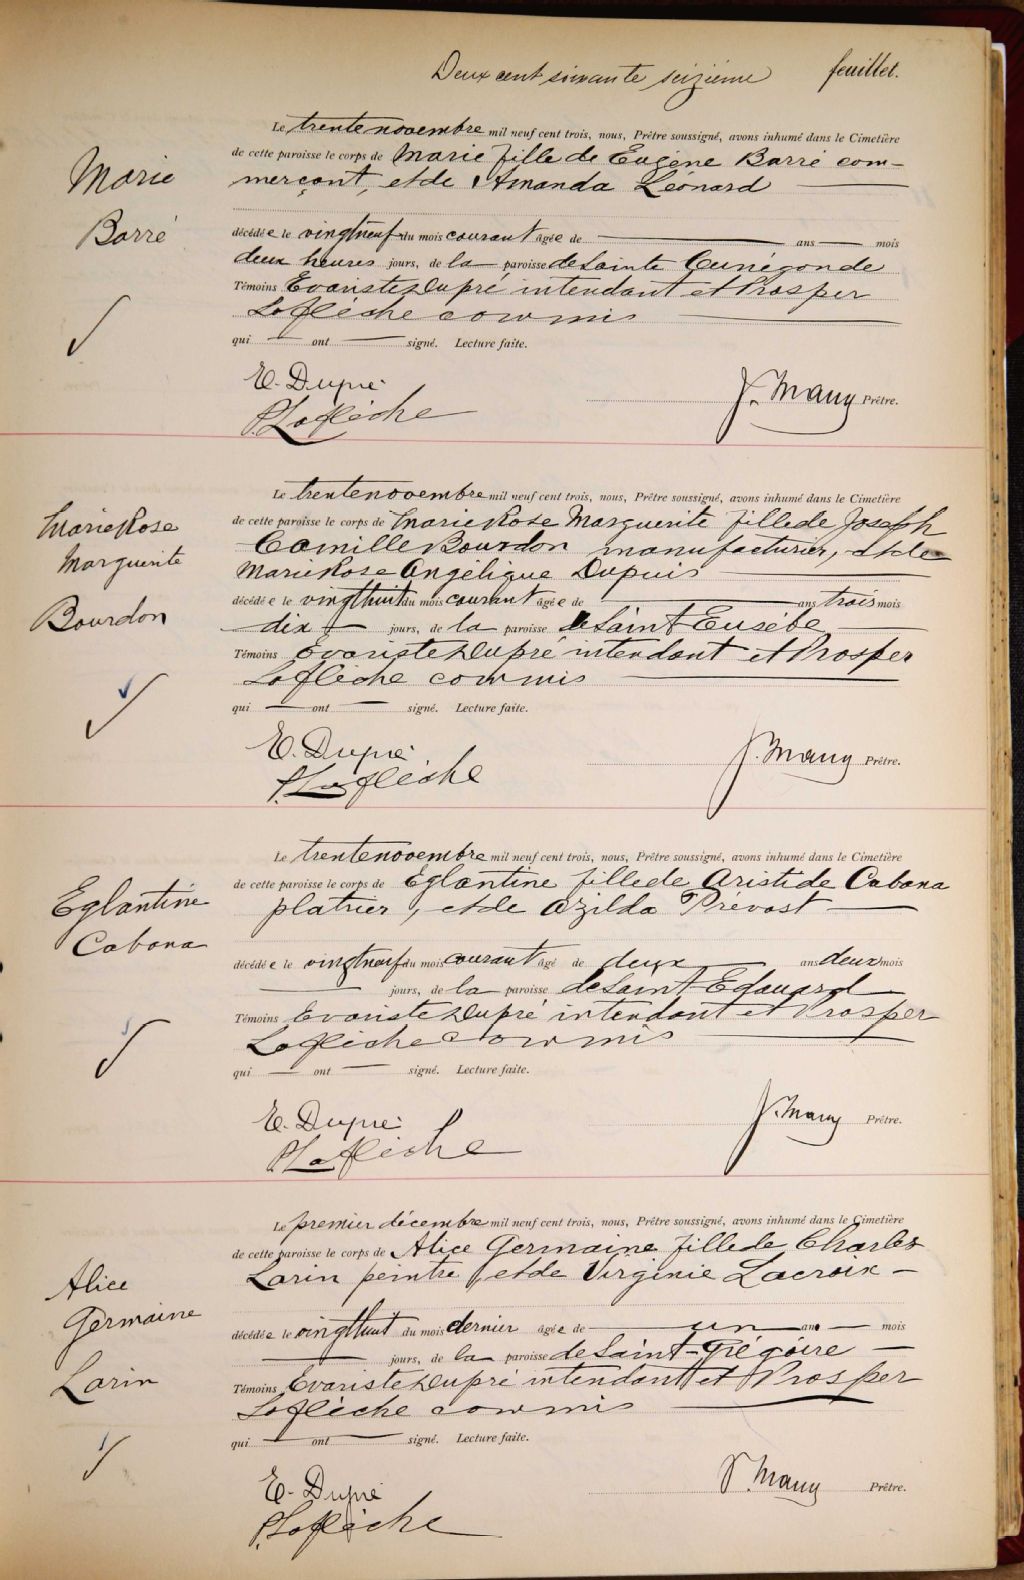 Deux cent soixante seizième feuillet.
Le trente novembre mil neuf cent trois, nous, Prêtre soussigné, avons inhumé dans le Cimetière
de cette paroisse le corps de Marie fille de Eugène Barré com-
merçant, et de Amanda Léonard
Marie
Barré
décédée le vingtneuf du mois courant âgée de ans mois
deux heures jours, de la paroisse de Sainte Cunégonde
Témoins Evariste Dupré intendant et Prosper
Laflèche commis
qui ont signé. Lecture faite.
E. Dupré
P. Laflèche
J. Many Prêtre.
Le trente novembre mil neuf cent trois, nous, Prêtre soussigné, avons inhumé dans le Cimetière
de cette paroisse le corps de Marie Rose Marguerite fille de Joseph
Camille Bourdon manufacturier, et de
Marie Rose Angélique Dupuis
Marie Rose
Marguerite
Bourdon
décédée le vingthuit du mois courant âgée de ans trois mois
dix jours, de la paroisse de Saint Eusèbe
Témoins Evariste Dupré intendant et Prosper
Laflèche commis
qui ont signé. Lecture faite.
E. Dupré
P. Laflèche
J. Many Prêtre.
Le trente novembre mil neuf cent trois, nous, Prêtre soussigné, avons inhumé dans le Cimetière
de cette paroisse le corps de Eglantine fille de Aristide Cabana
platrier, et de Azilda Prévost
Eglantine
Cabana
décédée le vingtneuf du mois courant âgé de deux ans deux mois
jours, de la paroisse de Saint Edouard
Témoins Evariste Dupré intendant et Prosper
Laflèche commis
qui ont signé. Lecture faite.
E. Dupré
P. Laflèche
J. Many Prêtre.
Le premier décembre mil neuf cent trois, nous, Prêtre soussigné, avons inhumé dans le Cimetière
de cette paroisse le corps de Alice Germaine fille de Charles
Larin peintre, et de Virginie Lacroix
Alice
Germaine
Larin
décédée le vingthuit du mois dernier âgée de un an mois
jours, de la paroisse de Saint-Grégoire
Témoins Evariste Dupré intendant et Prosper
Laflèche commis
qui ont signé. Lecture faite.
E. Dupré
P. Laflèche
J. Many Prêtre.